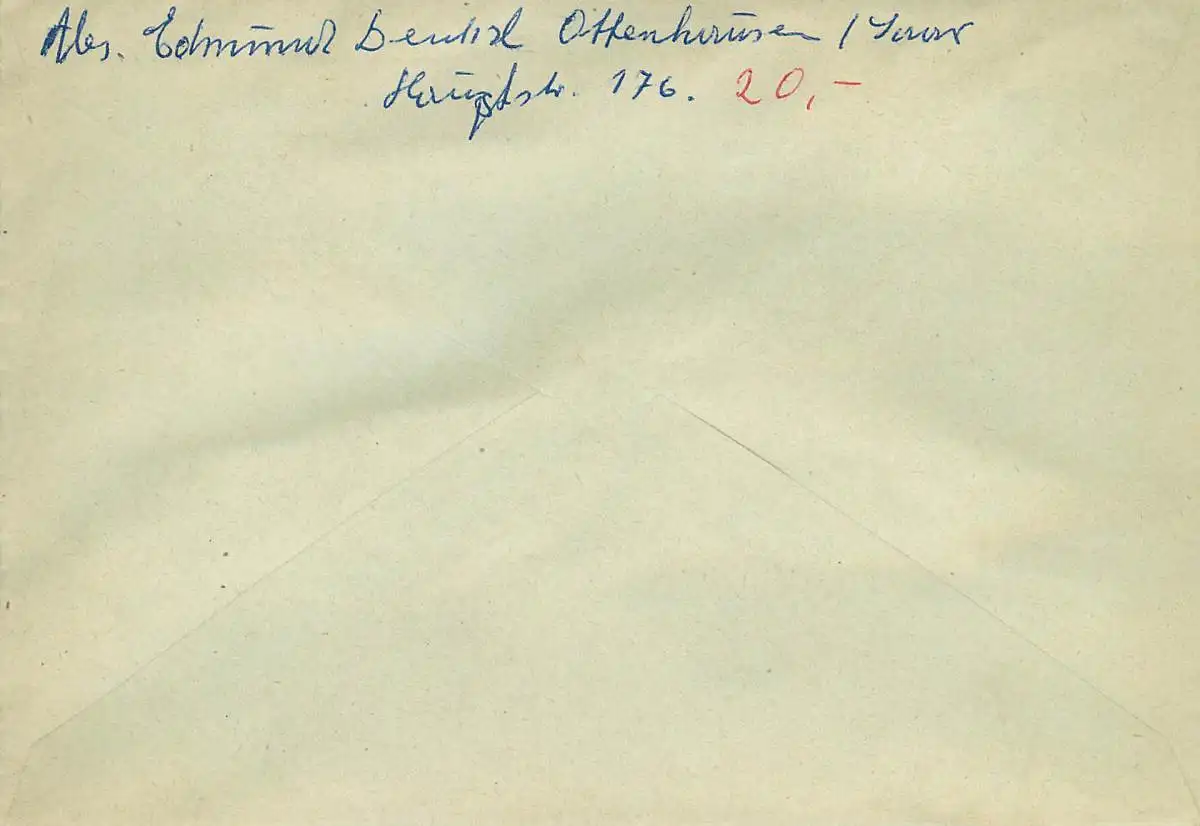 Abs. Edmund Ottenhausen / Saar
Hauptstr. 176. 20,-